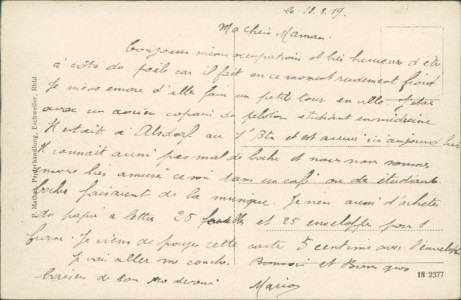 le 18.2.19.
Ma chère Maman.
Toujours même occupations et bien heureux d'être
à côté du poêle car il fait en ce moment rudement froid
Je viens encore d'aller faire un petit tour en ville
avec un ancien copain du peloton étudiant en médecine
Il était à Alsdorf au 1er Btn et est arrivé ici aujourd'hui
Il connait aussi pas mal de boche et nous nous sommes
bien amusé ce soir dans un café ou de étudiants
boches faisaient de la musique. Je viens aussi d'acheter
du papier a lettre 25 feuilles et 25 enveloppe pour 1
franc. Je viens de payer cette carte 5 centimes avec l'enveloppe
Je vais aller me coucher. Bonsoir et Bons gros
baisers de ton
Marios
Mathar, Papierhandlung, Eschweiler, Rhld.
18 2377